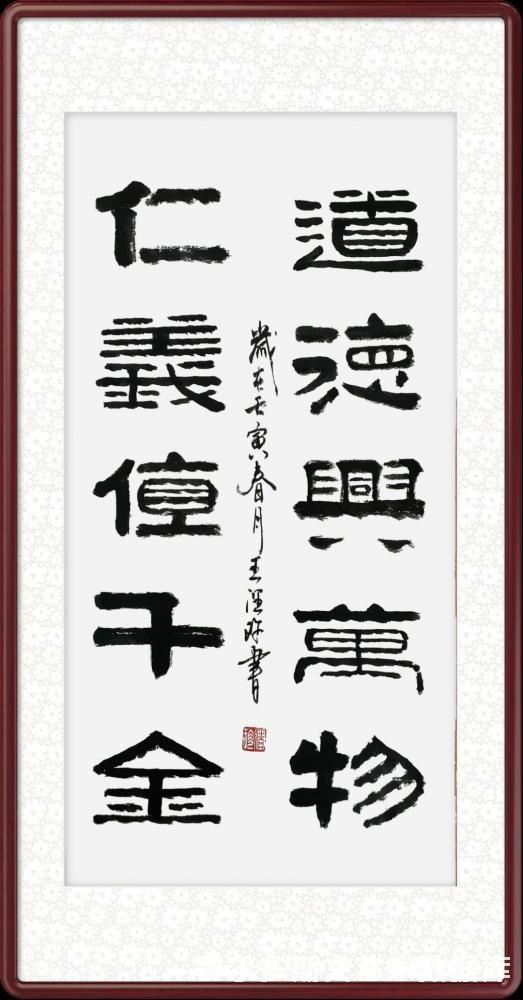 道德興萬物
仁義值千金
歲在壬寅春月王書